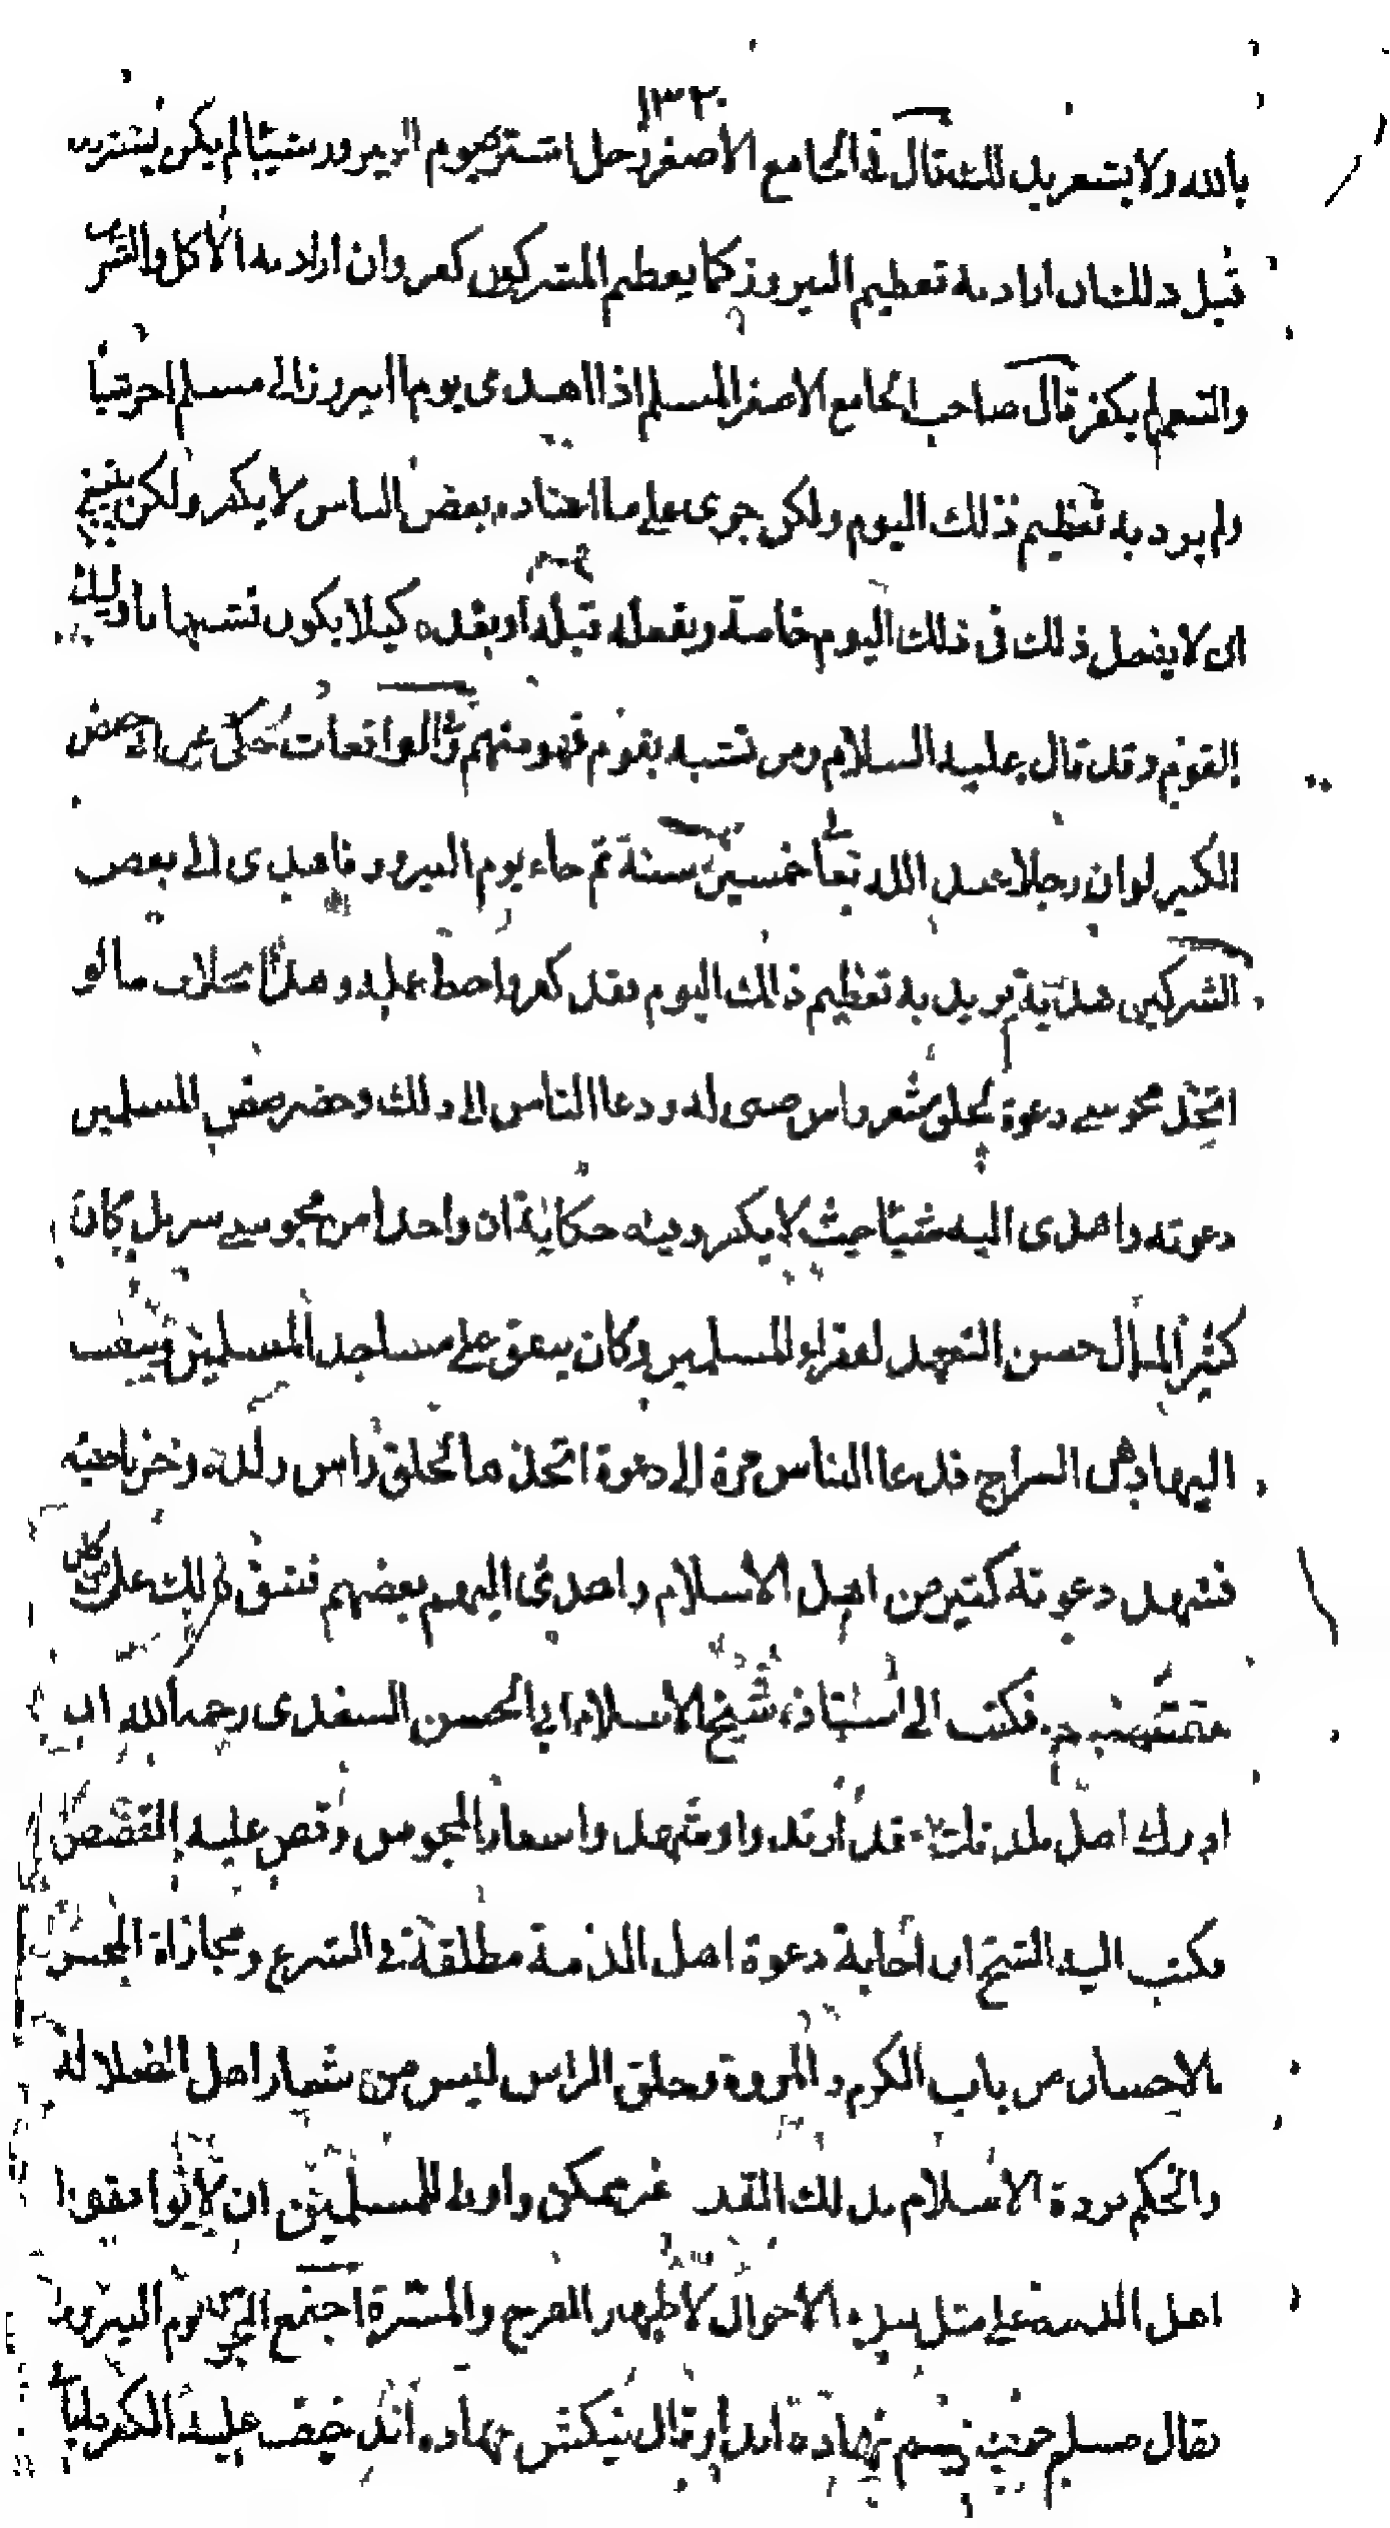 ١٣٢٠
بالله ولا يشعر بذلك قال في الجامع الاصغر رجل اشترى يوم النيروز شيئا لم يكن يشتريه
قبل ذلك ان اراد به تعظيم النيروز كما يعظم المشركون كفر وان اراد به الاكل والشرب
والتنعم لم يكفر قال صاحب الجامع الاصغر المسلم اذا اهدى يوم النيروز الى مسلم اخر شيئا
ولم يرد به تعظيم ذلك اليوم ولكن جرى على ما اعتاده بعض الناس لا يكفر ولكن ينبغي
ان لا يفعل ذلك في ذلك اليوم خاصة ويفعله قبله او بعده كيلا يكون تشبها باولئك
القوم وقد قال عليه السلام ومن تشبه بقوم فهو منهم وفي الواقعات حكى عن ابي حفص
الكبير لو ان رجلا عبد الله تعالى خمسين سنة ثم جاء يوم النيروز فاهدى الى بعض
المشركين هدية يريد به تعظيم ذلك اليوم فقد كفر واحبط عمله وهذا بخلاف ما لو
اتخذ مجوسي دعوة لحلق شعر راس صبي له ودعا الناس الى ذلك وحضر بعض المسلمين
دعوته واهدى اليه شيئا حيث لا يكفر وفيه حكاية ان واحدا من مجوسي سربل كان
كثير المال حسن التعهد لفقراء المسلمين وكان ينفق على مساجد المسلمين ويبعث
اليها دهن السراج فدعا الناس مرة الى دعوة اتخذها لحلق راس ولده وجز ناصيته
فشهد دعوته كثير من اهل الاسلام واهدى اليهم بعضهم فشق ذلك على
مفتيهم فكتب الى استاذه شيخ الاسلام ابي الحسن السغدى رحمه الله ان
ادرك اهل بلدتك قد ارتدوا وشهدوا شعار المجوس وقص عليه القصص
فكتب اليه الشيخ ان اجابة دعوة اهل الذمة مطلقة في الشرع ومجازاة المحسن
بالاحسان من باب الكرم والمروة وحلق الراس ليس من شعار اهل الضلالة
والحكم بردة الاسلام بذلك القدر غير ممكن واولى للمسلمين ان لا يوافقوا
اهل الذمة على مثل هذه الاحوال لاظهار الفرح والمسرة اجتمع المجوس يوم النيروز
فقال مسلم خوب رسم نهاده اند او قال نيكش نهاده اند خيف عليه الكفر